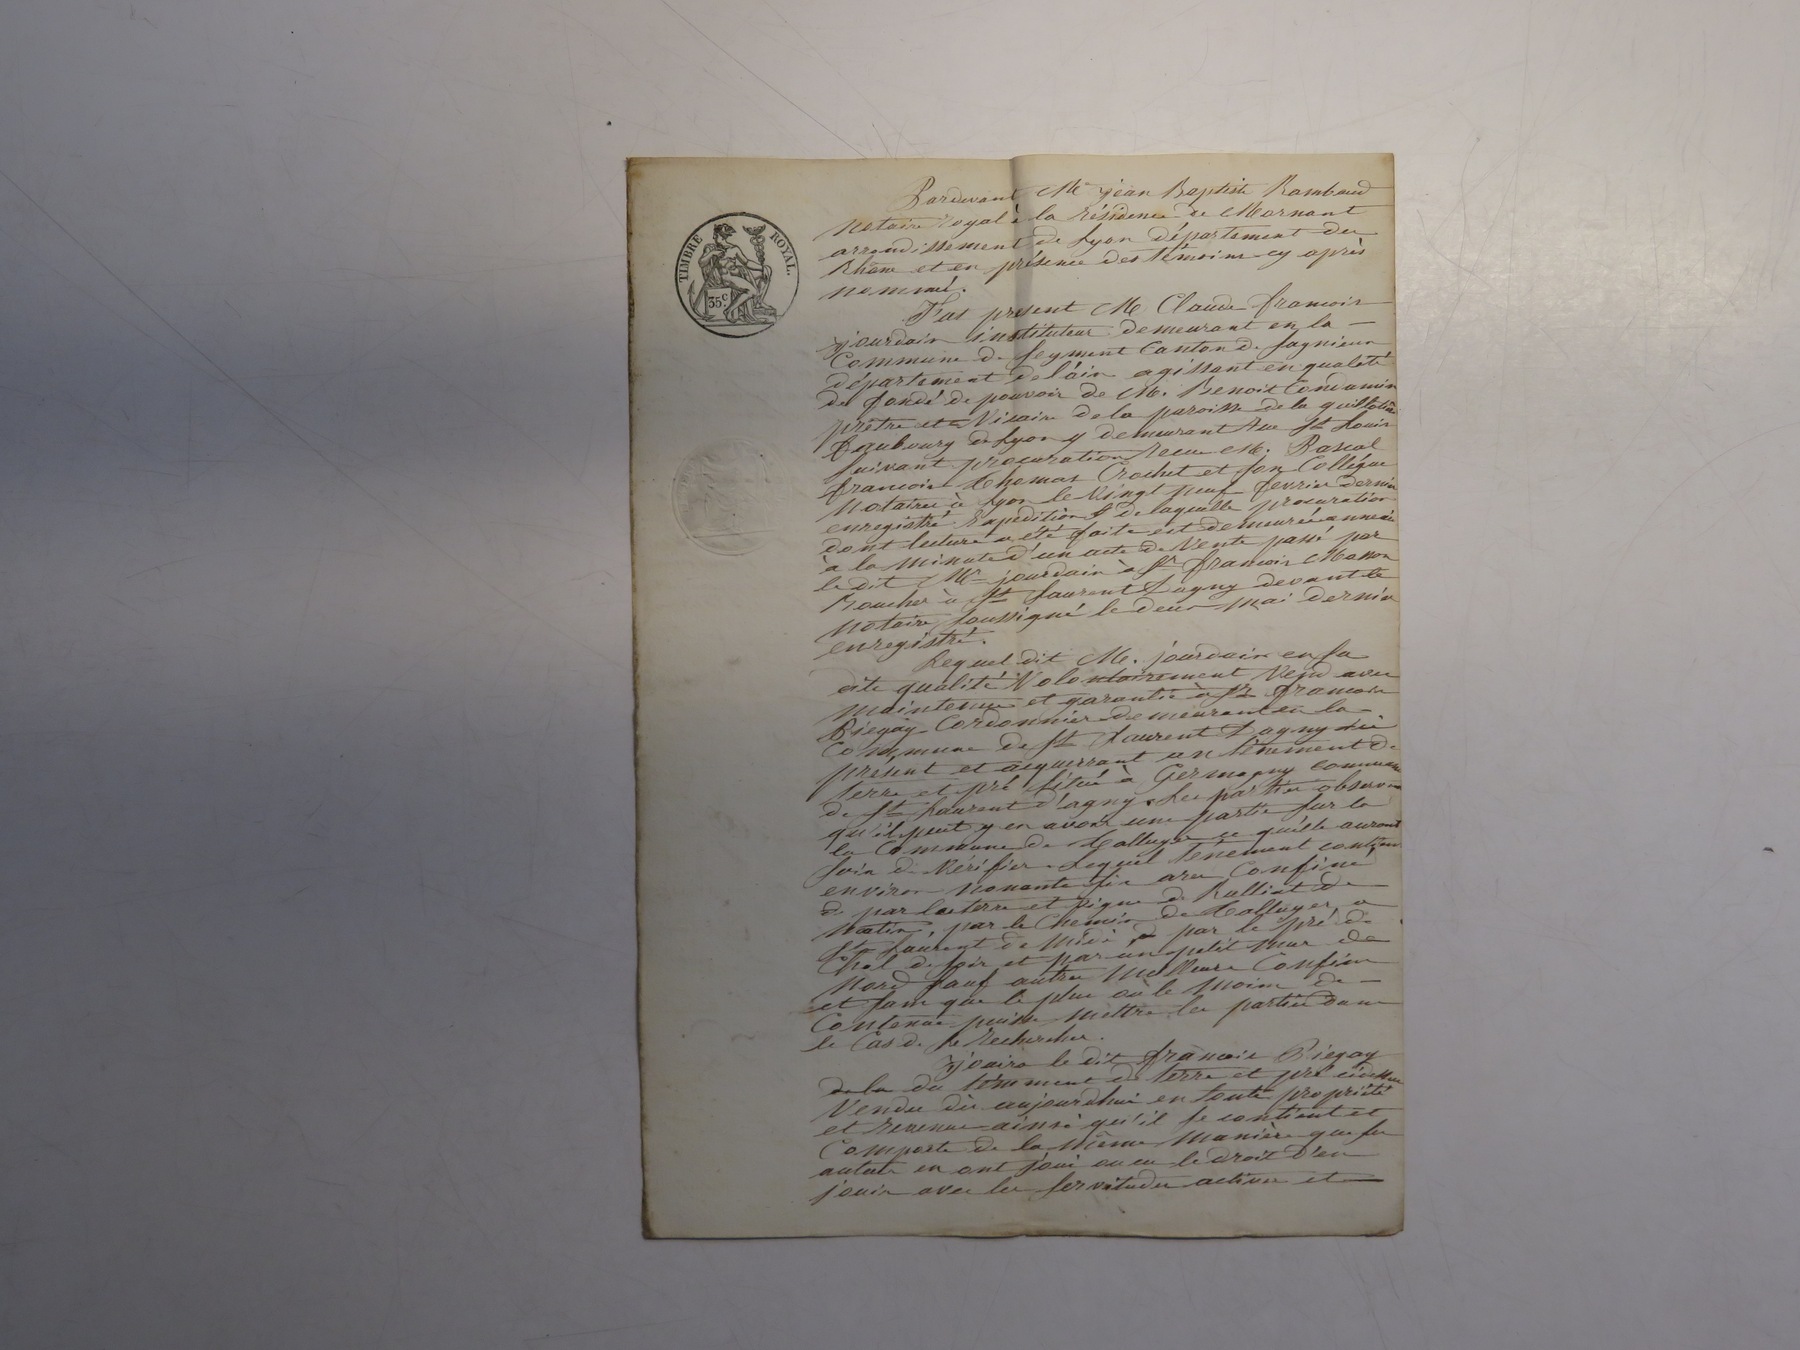 TIMBRE ROYAL.
35c.
Pardevant Me jean Baptiste Rambaud
Notaire Royal à la résidence de Mornant
arrondissement de Lyon département du
Rhône et en présence des témoins cy après
nommé.
Fut présent M. Claude francois
jourdain instituteur demeurant en la
Commune de Leyment Canton de Lagnieux
département de l'ain agissant en qualité
de fondé de pouvoir de M. Benoit
prêtre et Vicaire de la paroisse de la guillotière
faubourg de Lyon y demeurant Rue St Louis
suivant procuration Recue Me. Pascal
francois thomas Crochet et son Collégue
Notaires à Lyon le Vingt neuf fevrier dernier
enregistré Expédition de laquelle procuration
dont lecture a été faite est demeurée annexée
à la Minute d'un acte de Vente passé par
le dit Mr jourdain à Sr francois
Boucher à St Laurent D'agny devant le
Notaire soussigné le deux Mai dernier
enregistré.
Lequel dit M. jourdain en sa
dite qualité Volontairement Vend avec
maintenue et garantie à Sr francois
Piegay Cordonnier demeurant en la
Commune de St Laurent D'agny ici
présent et acquerrant un tenement de
terre et pré situé à Germagny commune
de St Laurent d'agny. Les parties observent
qu'il peut y en avoir une partie sur la
la Commune de Talluyer ce qu'elle auront
soin de Vérifier. Lequel tènement contient
environ Nonante six ares Confiné
de par la terre et Vigne de Ralliat de
Matin, par le Chemin de Talluyer a
St Laurent de Midi par le pré de
Chol de soir et par un petit mur de
Nord sauf autres Meilleurs Confins
et sans que le plus où le Moins de
Contenue puisse Mettre les parties dans
le Cas de se Rechercher.
jouira le dit francois Piegay
du tènement de terre et pré cidessus
Vendu dès aujourd'hui en toute propriété
et Revenu ainsi qu'il se contient et
Comporte de la Même Manière que ses
auteurs en ont joui ou eu le droit d'en
jouir avec les servitudes actives et